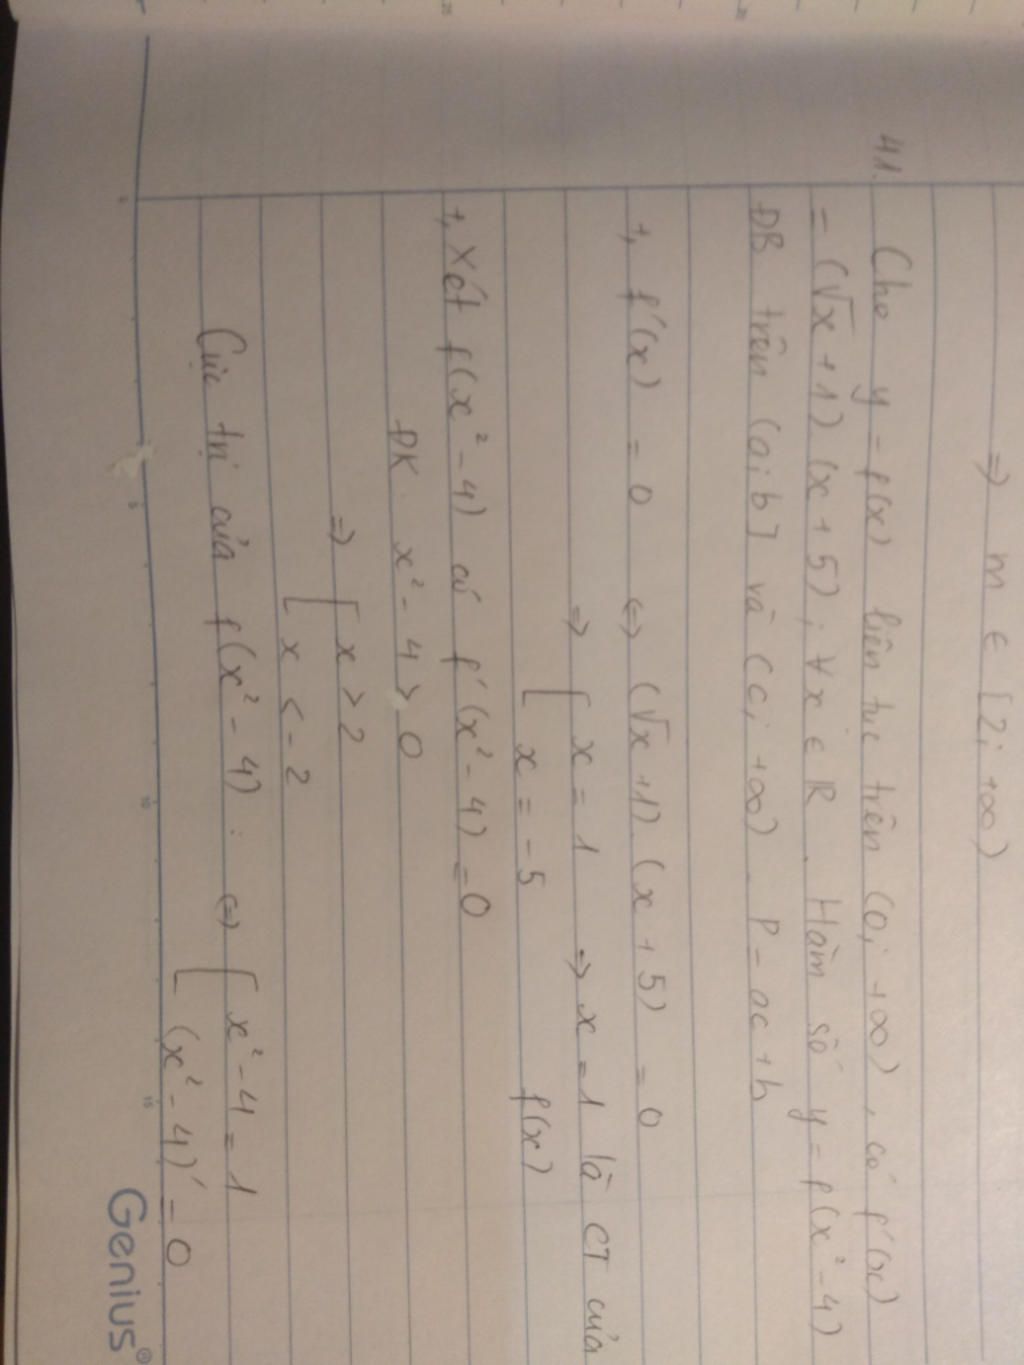 => m ∈ [2; +∞)
41. Cho y = f(x) liên tục trên (0; +∞), có f'(x)
= (√x + 1)(x + 5); ∀x ∈ R. Hàm số y = f(x² - 4)
ĐB trên (a; b] và (c; +∞). P = ac + b
+, f'(x) = 0 <=> (√x + 1).(x + 5) = 0
=> [ x = 1 => x = 1 là CT của
x = -5 f(x)
+, Xét f(x² - 4) có f'(x² - 4) = 0
ĐK: x² - 4 > 0
=> [ x > 2
x < -2
Cực trị của f(x² - 4): <=> [ x² - 4 = 1
(x² - 4)' = 0
Genius®